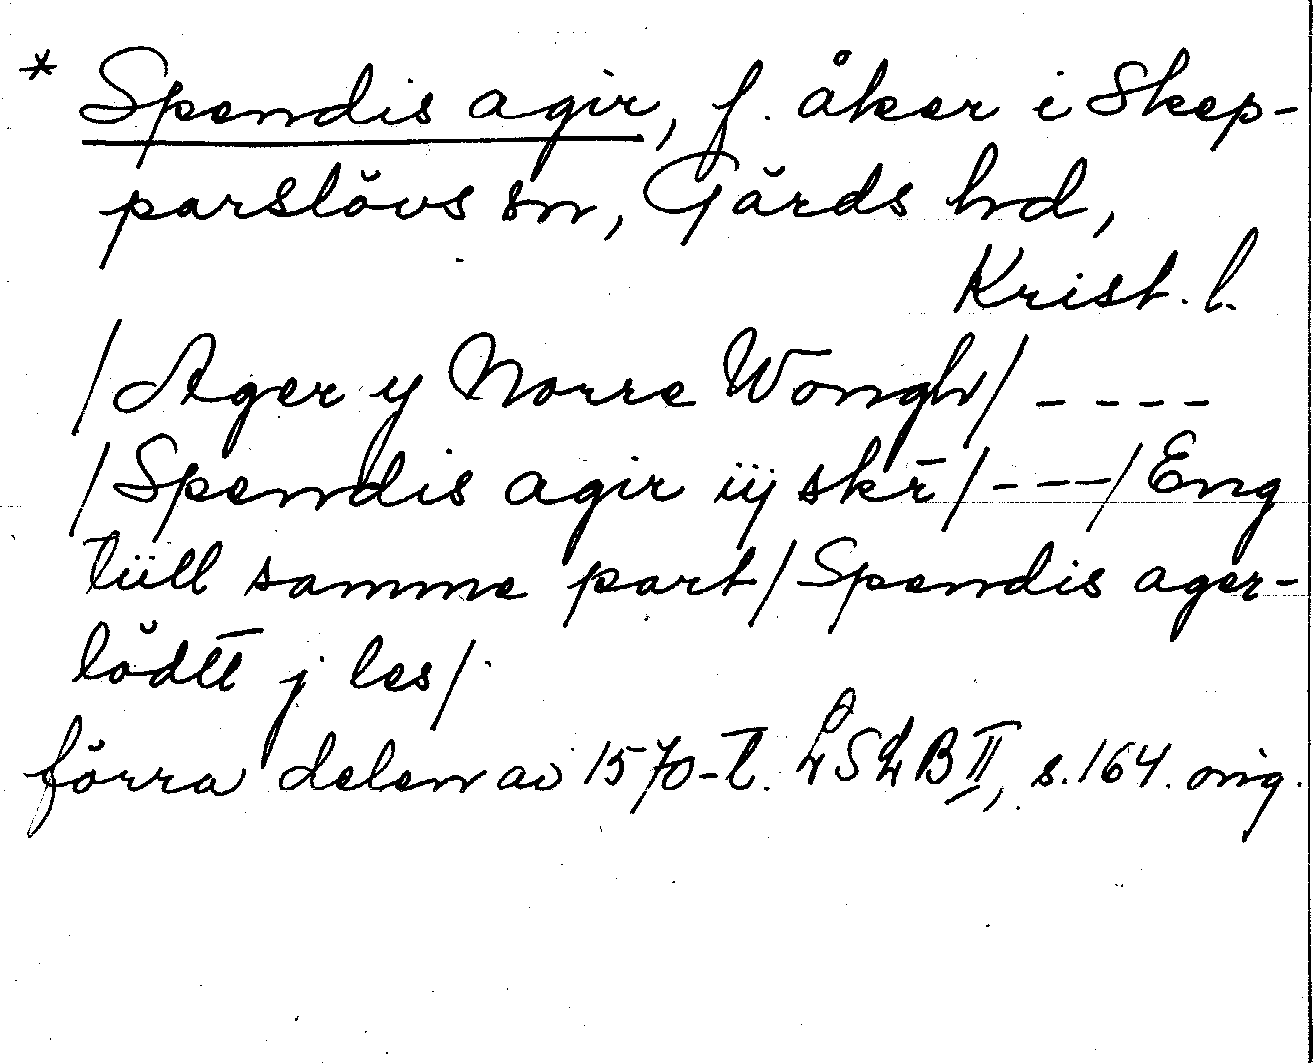 * Spendis agir, f. åker i Skep-
parslövs sn, Gärds hd,
Krist. l.
/Ager y Norre Wongh/ ----
/Spendis agir iij skr̄/---/Eng
tüll samme part/Spendis ager-
lödtt j les/
förra delen av 1570-t. LSLB II, s. 164. orig.